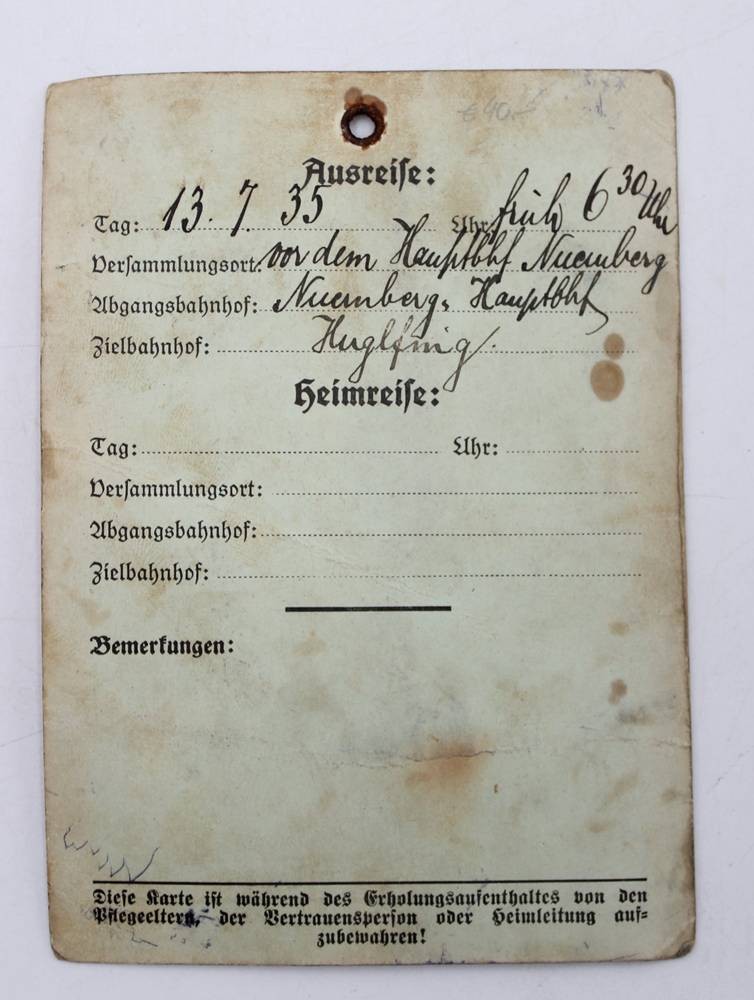 € 40.-
Ausreise:
Tag: 13. 7. 35 Uhr früh 6 30 Uhr
Versammlungsort: vor dem Hauptbhf Nuernberg
Abgangsbahnhof: Nuernberg, Hauptbhf
Zielbahnhof: Huglfing.
Heimreise:
Tag: Uhr:
Versammlungsort:
Abgangsbahnhof:
Zielbahnhof:
Bemerkungen:
Diese Karte ist während des Erholungsaufenthaltes von den
Pflegeeltern, der Vertrauensperson oder Heimleitung auf-
zubewahren!